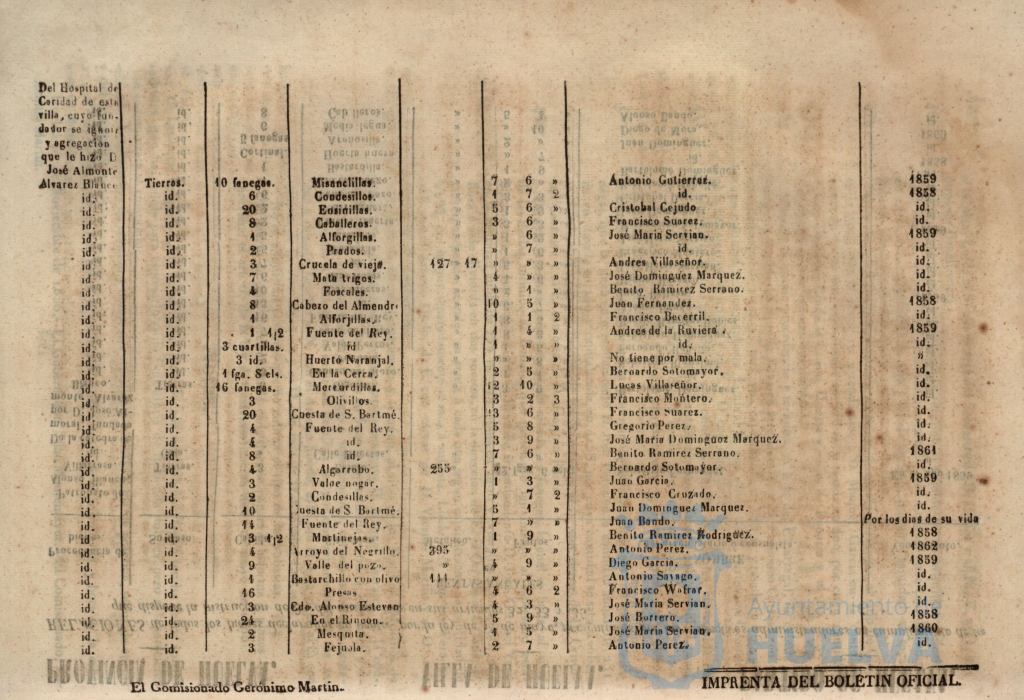 Del Hospital de
Caridad de esta
villa, cuyo fun-
dador se ignora
y agregacion
que le hizo D.
José Almonte
Alvarez Blanco Tierras. 10 fanegas. Misanclillas. 7 6 » Antonio Gutierrez. 1859
id. id. 6 Condesillos. 1 7 2 id. 1858
id. id. 20 Ensinillas. 5 6 » Cristobal Cejudo id.
id. id. 8 Caballeros. 3 6 » Francisco Suarez. id.
id. id. 1 Alforgillas. » 6 » José Maria Servian. 1859
id. id. 2 Prados. » 7 » id. id.
id. id. 3 Cruceta de vieja. 127 17 » » » Andres Villaseñor. id.
id. id. 7 Mata trigos. 4 » » José Dominguez Marquez. id.
id. id. 4 Foscales. » 1 » Benito Ramirez Serrano. id.
id. id. 8 Cabezo del Almendro 10 5 » Juan Fernandez. 1858
id. id. 1 Alforjillas. 1 1 2 Francisco Becerril. id.
id. id. 1 1|2 Fuente del Rey. 1 4 » Andres de la Ruviera. 1859
id. id. 3 cuartillas. id 1 » » id. id.
id. id. 3 id. Huerto Naranjal. » » » No tiene por mala. »
id. id. 1 fga. 8 cls. En la Cerra. 2 5 » Bernardo Sotomayor. id.
id. id. 16 fanegas. Mercurdillas. 12 10 » Lucas Villaseñor. id.
id. id. 3 Olivillos. 3 2 3 Francisco Montero. id.
id. id. 20 Cuesta de S. Bartmé. 13 6 » Francisco Suarez. id.
id. id. 4 Fuente del Rey. 5 8 » Gregorio Perez. id.
id. id. 4 id. 3 9 » José Maria Dominguez Marquez. id.
id. id. 8 id. 7 6 » Benito Ramirez Serrano. 1861
id. id. 4 Algarrobo. 255 » » » Bernardo Sotomayor. id.
id. id. 3 Valde nogar. 1 3 » Juan Garcia. 1859
id. id. 2 Condesillas. » 7 2 Francisco Cruzado. id.
id. id. 10 Cuesta de S. Bartmé. 5 1 » Juan Dominguez Marquez. id.
id. id. 14 Fuente del Rey. 7 » » Juan Bando. Por los dias de su vida
id. id. 3 1|2 Martinejas. 1 9 » Benito Ramirez Rodriguez. 1858
id. id. 4 Arroyo del Negrillo. 395 » » » Antonio Perez. 1862
id. id. 9 Valle del pozo. » 4 9 » Diego Garcia. 1859
id. id. 1 Bastarchillo con olivo 111 » » » Antonio Savago. id.
id. id. 16 Presas 4 6 2 Francisco Wafrar. id.
id. id. 3 Edo. Alonso Estevan 4 3 » José Maria Servian. id.
id. id. 24 En el Rincon. 5 9 » José Borrero. 1858
id. id. 2 Mesquita. 1 5 » José Maria Servian. 1860
id. id. 3 Fejuela. 2 7 » Antonio Perez. id.
El Comisionado Gerónimo Martin.
IMPRENTA DEL BOLETIN OFICIAL.
Ayuntamiento de
HUELVA